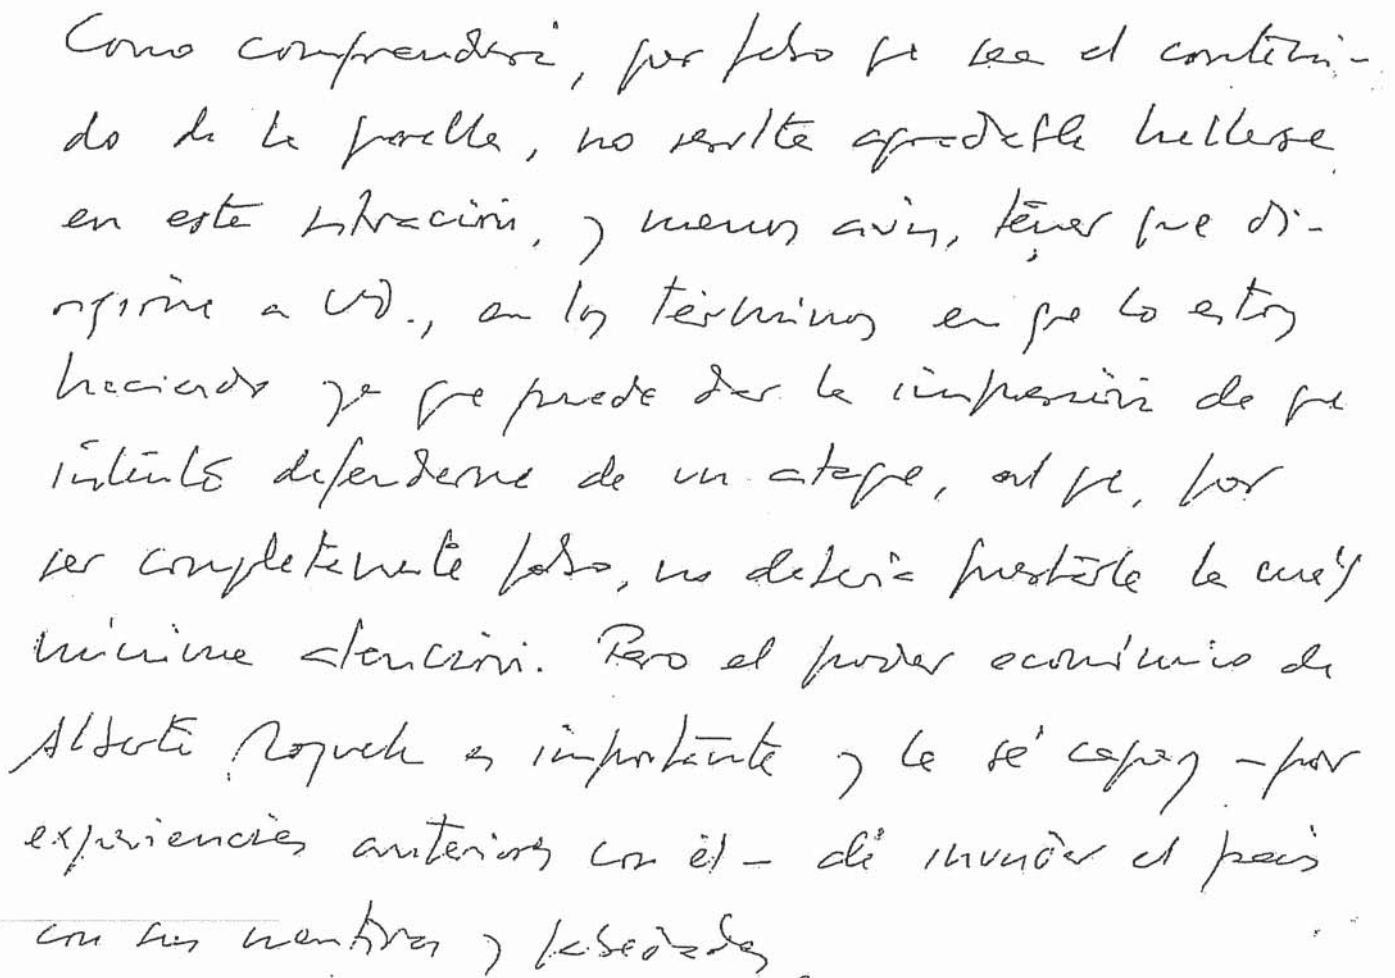 Como comprenderá, por falso que sea el conteni-
do de la querella, no resulta agradable hallarse
en esta situación, y menos aún, tener que di-
rigirme a VD., en los términos en que lo estoy
haciendo ya que puede dar la impresión de que
intento defenderme de un ataque, al que, por
ser completamente falso, no debería prestarle la más
mínima atención. Pero el poder económico de
Alberto es importante y le sé capaz - por
experiencias anteriores con él - de inundar el país
con sus mentiras y falsedades.